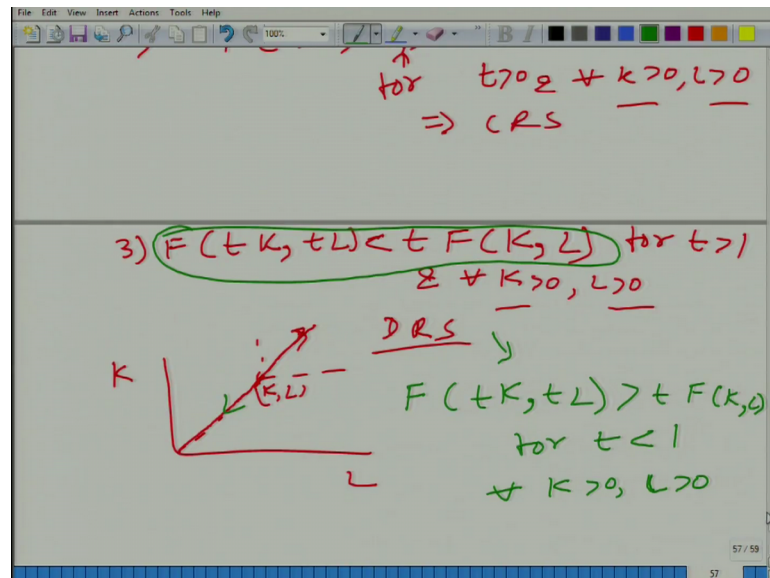 File Edit View Insert Actions Tools Help
100%
for t>0 & ∀ K>0, L>0
⇒ CRS
3) F(tK, tL) < t F(K, L) for t>1
& ∀ K>0, L>0
DRS
K
(K, L)
L
F(tK, tL) > t F(K, L)
for t<1
∀ K>0, L>0
57 / 59
57